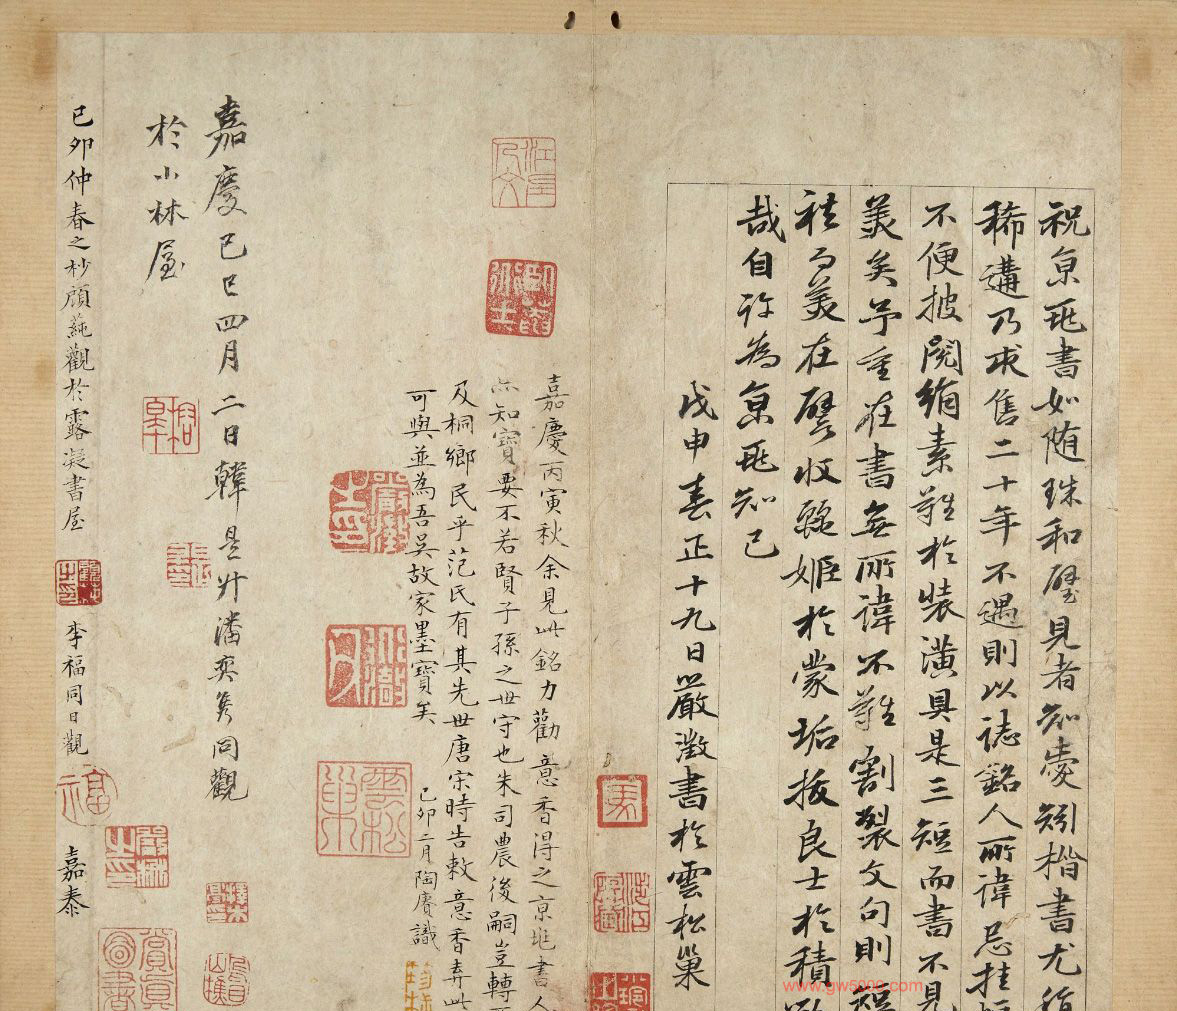 祝京兆書如隨珠和璧見者知愛矧楷書尤
稀遘乃求售二十年不遇則以誌銘人所諱忌挂
不便披閱絹素難於裝潢具是三短而書不見
美矣予重在書無所諱不難割裂文句則
袪而美在譬收驪姬於蒙垢拔良士於積
哉自許為京兆知己
戊申春正十九日嚴澂書於雲松巢
嘉慶丙寅秋余見此銘力勸意香得之京兆書人
知寶要不若賢子孫之世守也朱司農後嗣豈轉
及桐鄉民乎范氏有其先世唐宋時告敕意香弆此
可與並為吾吳故家墨寶矣
己卯二月陶賡識
嘉慶己巳四月二日韓是升潘奕雋同觀
於小林屋
己卯仲春之杪顧蒓觀於露凝書屋
李福同日觀
嘉泰
www.gw5000.com